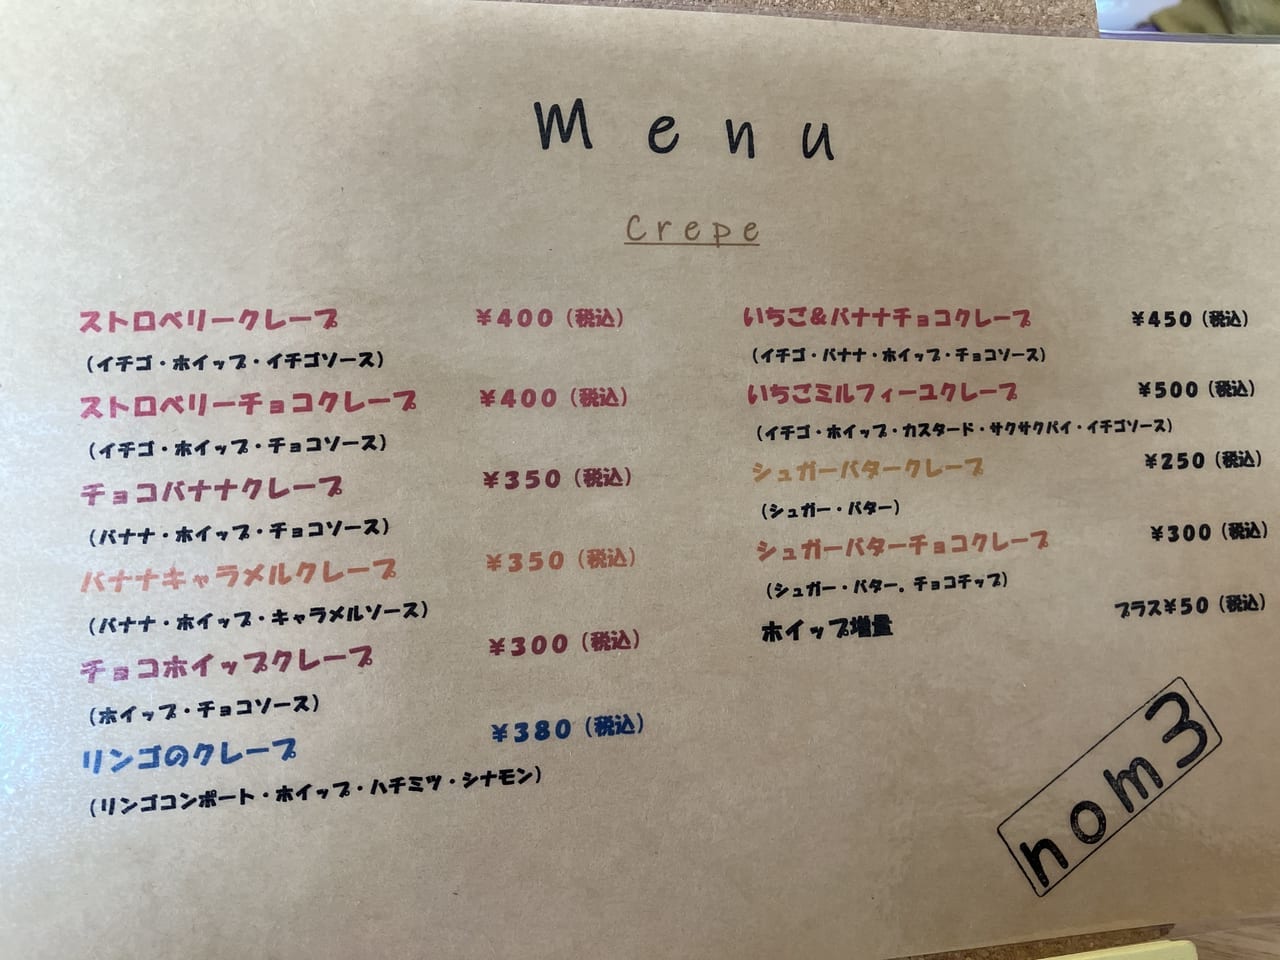 Menu
Crepe
ストロベリークレープ ¥400（税込）
（イチゴ・ホイップ・イチゴソース）
ストロベリーチョコクレープ ¥400（税込）
（イチゴ・ホイップ・チョコソース）
チョコバナナクレープ ¥350（税込）
（バナナ・ホイップ・チョコソース）
バナナキャラメルクレープ ¥350（税込）
（バナナ・ホイップ・キャラメルソース）
チョコホイップクレープ ¥300（税込）
（ホイップ・チョコソース）
リンゴのクレープ ¥380（税込）
（リンゴコンポート・ホイップ・ハチミツ・シナモン）
いちご&バナナチョコクレープ ¥450（税込）
（イチゴ・バナナ・ホイップ・チョコソース）
いちごミルフィーユクレープ ¥500（税込）
（イチゴ・ホイップ・カスタード・サクサクパイ・イチゴソース）
シュガーバタークレープ ¥250（税込）
（シュガー・バター）
シュガーバターチョコクレープ ¥300（税込）
（シュガー・バター。チョコチップ）
ホイップ増量 プラス¥50（税込）
hom3